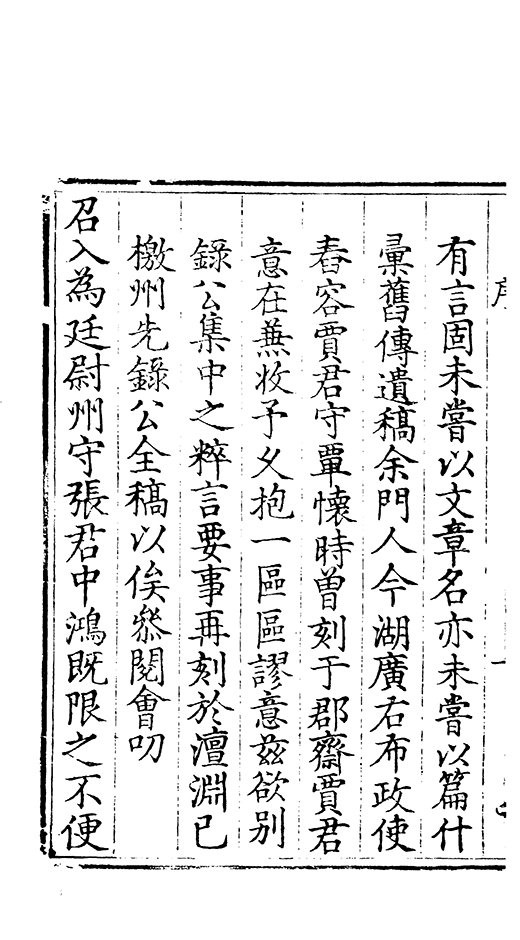 序
有言固未嘗以文章名亦未嘗以篇什
彙舊傳遺稿余門人今湖廣右布政使
舂容賈君守覃懷時曾刻于郡齋賈君
意在蒹收予乂抱一區區謬意茲欲别
錄公集中之粹言要事再刻於澶淵已
檄州先錄公全稿以俟叅閱會叨
召入為廷尉州守張君中鴻既限之不便